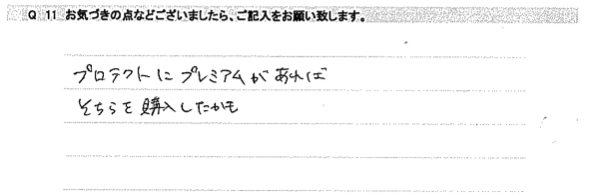 Q 11 お気づきの点などございましたら、ご記入をお願い致します。
プロテクトにプレミアムがあれば
そちらを購入したかも